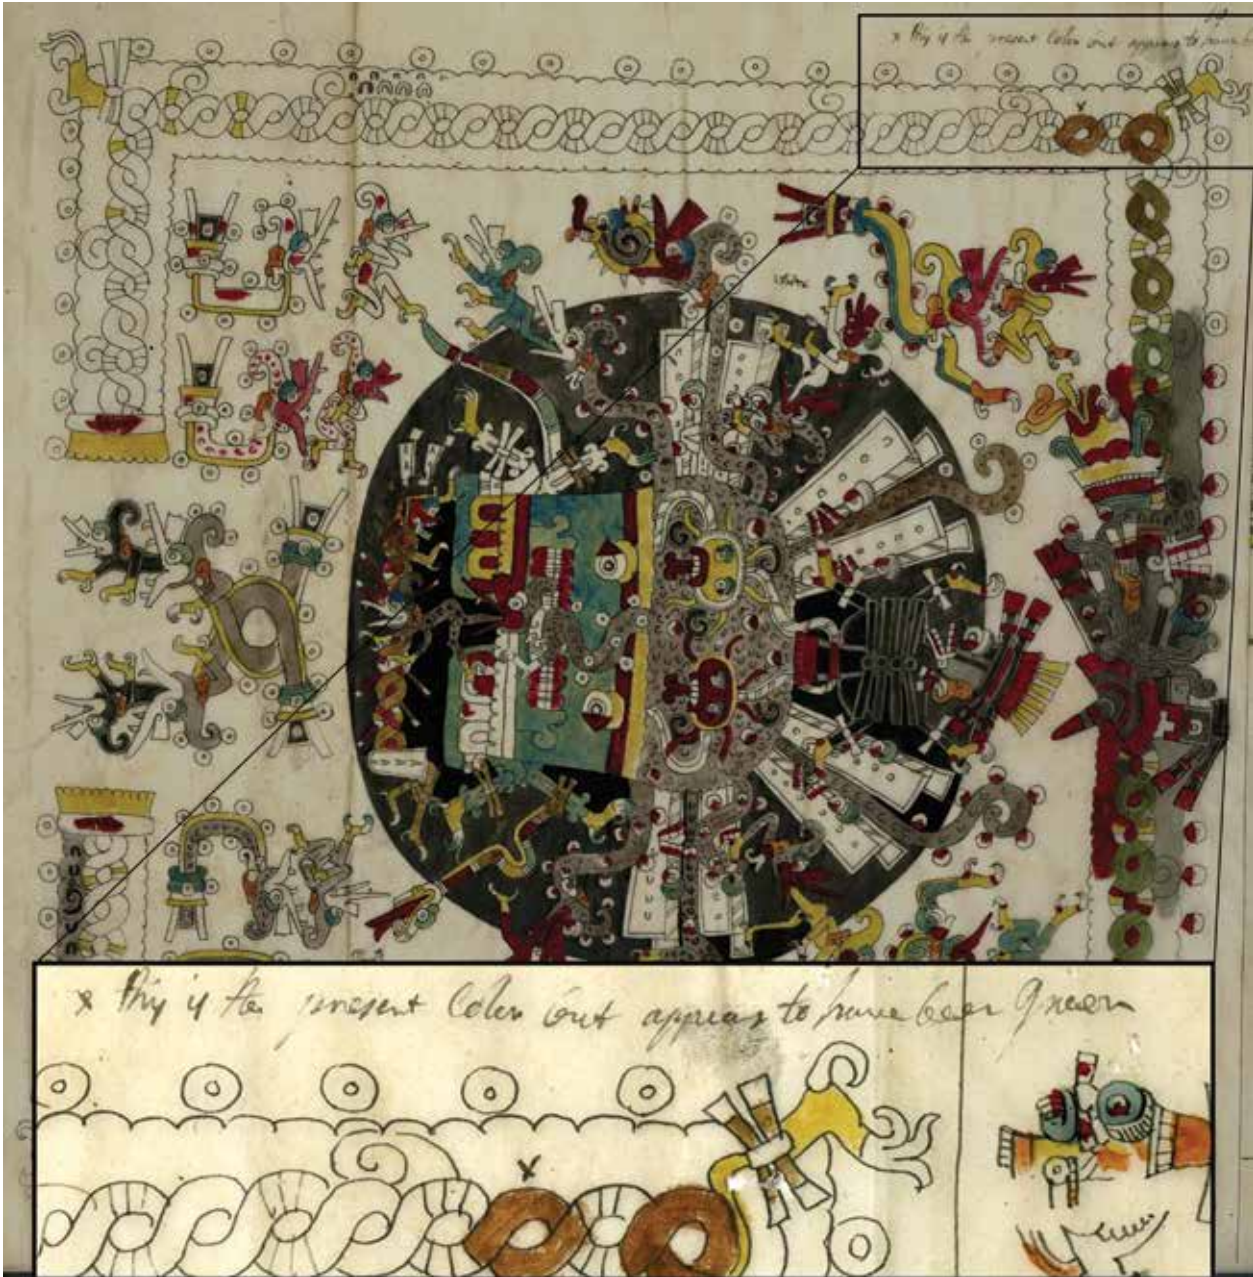 x this is the present Color but appears to have b
x
White
x this is the present Color but appears to have been Green
x